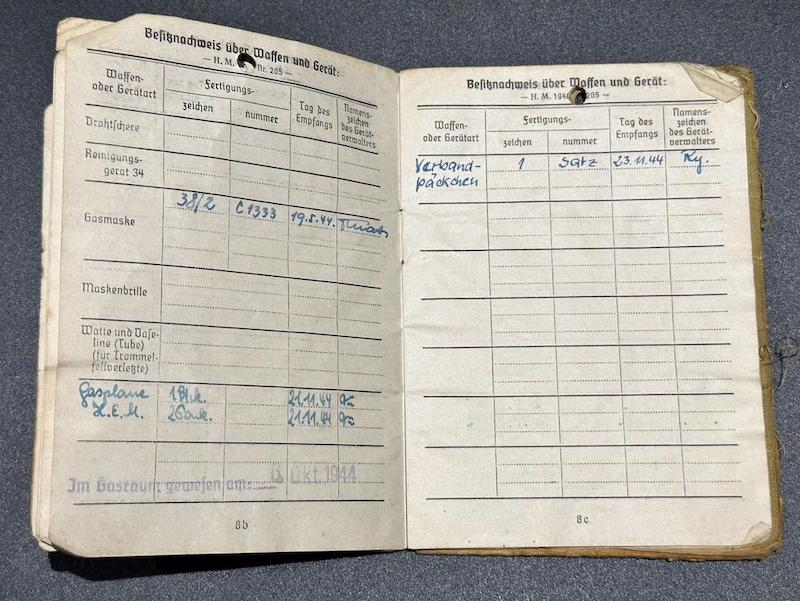 Besitznachweis über Waffen und Gerät:
— H. M. Nr. 205 —
Waffen- oder Geräteart
Fertigungs-
zeichen
nummer
Tag des Empfangs
Namens-zeichen des Gerät-verwalters
Drahtschere
Reinigungs-
gerät 34
Gasmaske 38/2 C1333 19.5.44.
Maskenbrille
Watte und Vase-
line (Tube)
(für Trommel-
fellverletzte)
Gasplane 1 Stck. 21.11.44
H.E.M. 2 Pack. 21.11.44
Im Gasraum gewesen am: Okt. 1944
8b
Besitznachweis über Waffen und Gerät:
— H. M. 194 205 —
Waffen-
oder Geräteart
Fertigungs-
zeichen
nummer
Tag des
Empfangs
Namens-
zeichen
des Gerät-
verwalters
Verband- 1 Satz 23.11.44 Ky.
päckchen
8c